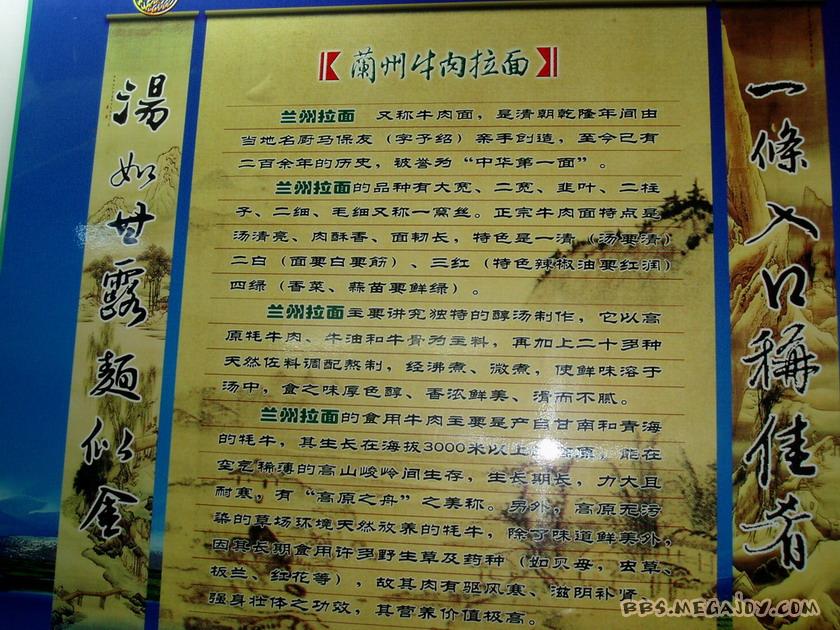 蘭州牛肉拉面
兰州拉面 又称牛肉面，是清朝乾隆年间由
当地名厨马保友（字予绍）亲手创造，至今已有
二百余年的历史，被誉为“中华第一面”。
兰州拉面的品种有大宽、二宽、韭叶、二柱
子、二细、毛细又称一窝丝。正宗牛肉面特点是
汤清亮、肉酥香、面韧长，特色是一清（汤要清）
二白（面要白要筋）、三红（特色辣椒油要红润）
四绿（香菜、蒜苗要鲜绿）。
兰州拉面主要讲究独特的醇汤制作，它以高
原牦牛肉、牛油和牛骨为主料，再加上二十多种
天然佐料调配熬制，经沸煮、微煮，使鲜味溶于
汤中，食之味厚色醇、香浓鲜美、滑而不腻。
兰州拉面的食用牛肉主要是产自甘南和青海
的牦牛，其生长在海拔3000米以上 能在
空气稀薄的高山峻岭间生存，生长期长，力大且
耐寒，有“高原之舟”之美称。另外，高原无污
染的草场环境天然放养的牦牛，除了味道鲜美外，
因其长期食用许多野生草及药种（如贝母，虫草、
板兰、红花等），故其肉有驱风寒、滋阴补肾、
强身壮体之功效，其营养价值极高。
湯如甘露麵似金
一條入口稱佳肴
BBS.MEGAJOY.COM